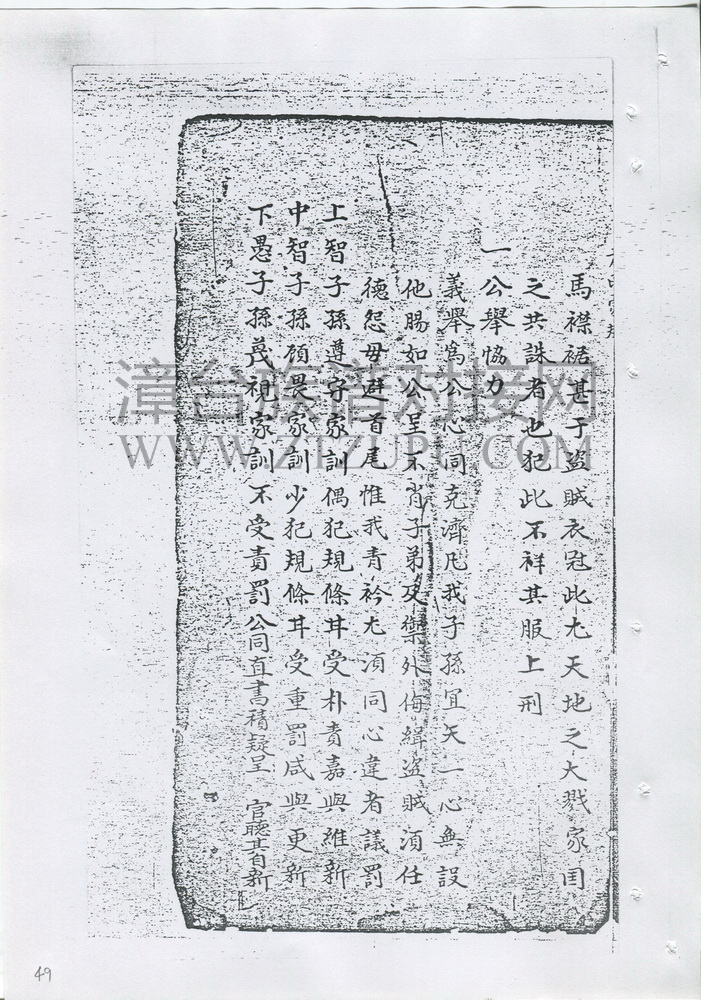 馬襟裾甚于盜賊衣冠此尤天地之大戮家国
之共誅者也犯此不祥其服上刑
一公舉協力
義舉為公心同克濟凡我子孫宜矢一心無設
他賜如公呈不肖子弟及禦外侮緝盜賊須任
德怨毋避首尾惟我青衿尤須同心違者議罰
上智子孫遵守家訓偶犯規條甘受朴責嘉與維新
中智子孫顧畏家訓少犯規條甘受重罰咸與更新
下愚子孫蔑視家訓不受責罰公同直書積疑呈 官聽其自新
漳台族谱对接网
WWW.ZTZUPU.COM
49